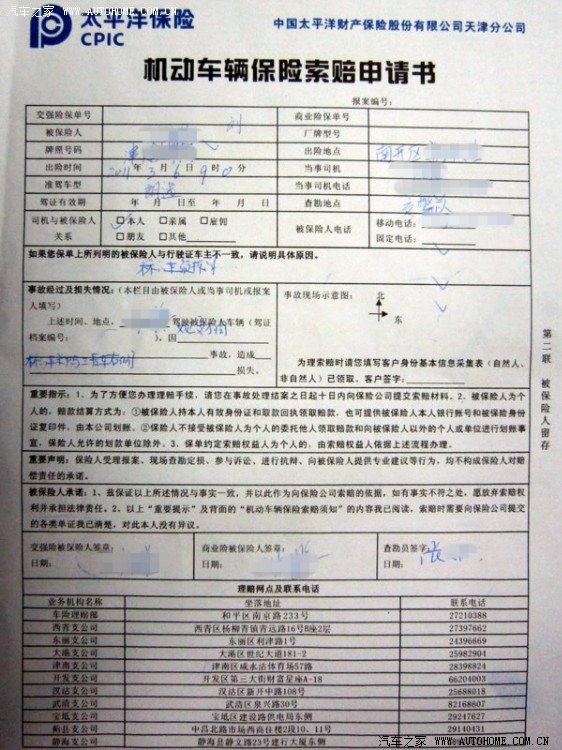 汽车之家 WWW.AUTOHOME.COM.CN
太平洋保险
CPIC
中国太平洋财产保险股份有限公司天津分公司
机动车辆保险索赔申请书
报案编号:
交强险保单号 商业险保单号
被保险人 厂牌型号
牌照号码 出险地点 南开区
出险时间 2011年3月6日9时0分 当事司机
准驾车型 当事司机电话
驾证有效期 年 月 日至 年 月 日 查勘地点
司机与被保险人关系 □本人 □亲属 □雇佣 □朋友 □其他 被保险人电话 移动电话: 固定电话:
如果您保单上所列明的被保险人与行驶证车主不一致,请说明具体原因。
事故经过及损失情况:(本栏目由被保险人或当事司机或报案人填写) 事故现场示意图: 北
东
上述时间、地点, 驾驶被保险人车辆(驾证
档案编号: ),因
事故,造成
损失。
为理索赔时请您填写客户身份基本信息采集表(自然人、
非自然人)已领取、客户签字:
第二联 被保险人留存
重要指示:1、为了方便您办理理赔手续,请您在事故处理结案之日起十日内向保险公司提交索赔材料。2、被保险人为个
人的,赔款结算方式为:①被保险人持本人有效身份证和取款回执领取赔款,也可提供被保险人本人银行账号和被保险身份
证复印件。由本公司划账。②保险人不接受被保险人为个人的委托他人领取赔款和向被保险人以外的个人或单位进行划账事
宜,保险人允许的划款单位除外。3、保单约定索赔权益人为个人的,由索赔权益人依据上述流程办理。
重要声明:保险人受理报案、现场查勘定损、参与诉讼、进行抗辩、向被保险人提供专业建议等行为,均不构成保险人对赔
偿责任的承诺。
被保险人承诺:1、兹保证以上所述情况与事实一致,并以此作为向保险公司索赔的依据,如有事实不符之处,愿放弃索赔权
利并承担法律责任。2、以上“重要提示”及背面的“机动车辆保险索赔须知”的内容我已阅读,索赔时需要向保险公司提交
的各类单证我已清楚,对此本人没有异议。
交强险被保险人签章: 商业险被保险人签章: 查勘员签字:
日期: 日期: 日期:
理赔网点及联系电话
业务机构名称 坐落地址 联系电话
车险理赔部 和平区南京路233号 27210388
西青支公司 西青区杨柳青镇青远路16号B座2层 27397662
东丽支公司 东丽区利津路1号 24396669
大港支公司 大港区世纪大道181-2 25982904
津南支公司 津南区咸水沽体育场57路 28398824
开发支公司 开发区第三大街财富星座A-18 66204003
汉沽支公司 汉沽区新开中路108号 25688018
武清支公司 武清区泉兴路30号 82168607
宝坻支公司 宝坻区建设路供电局东侧 29247627
蓟县支公司 中昌北路市场西商住楼 29140431
静海支公司 静海县静文路23号建行大厦东侧
汽车之家 WWW.AUTOHOME.COM.CN